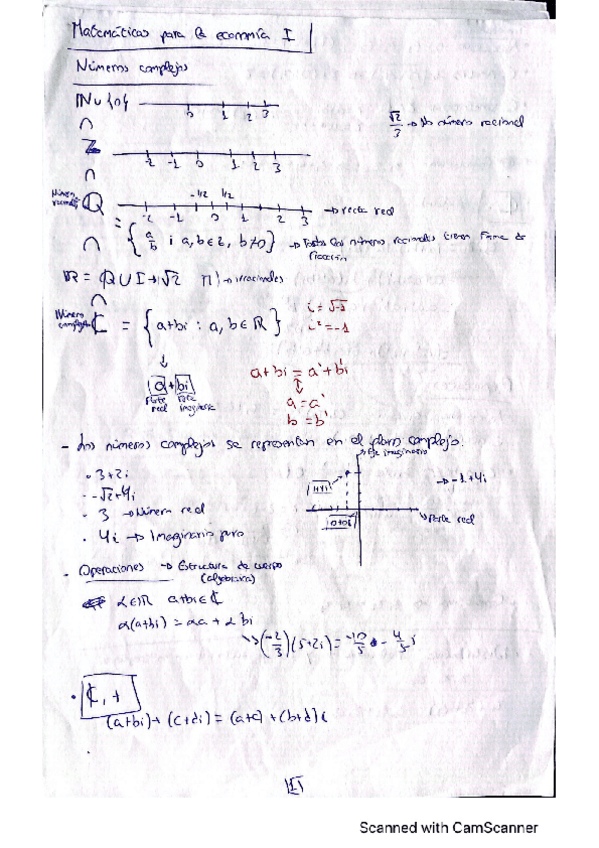 Matemáticas para la economía I
Números complejos
ℕ ∪ {0}
0 1 2 3
√2/3 → No número racional
∩
ℤ
-2 -1 0 1 2 3
∩
-1/2 1/2
Número racional ℚ
-2 -1 0 1 2 3 → recta real
= { a/b ; a, b ∈ ℤ, b≠0 } → Todos los números racionales tienen forma de fracción
∩
ℝ = ℚ ∪ I → √2 π → irracionales
∩
Número complejo ℂ = { a+bi : a, b ∈ ℝ }
i = √-1
i² = -1
↓
a + bi
Parte real
Parte imaginaria
a+bi = a'+b'i
↕
a = a'
b = b'
- Los números complejos se representan en el plano complejo:
Eje imaginario
· 3+2i
→ -1+4i
· -√2+4i
· 3 → Número real
Parte real
· 4i → Imaginario puro
- Operaciones → Estructura de cuerpo
(algebraica)
α∈ℝ a+bi∈ℂ
α(a+bi) = αa + α bi
(-2/3)(5+2i) =
· ℂ, +
(a+bi) + (c+di) = (a+c) + (b+d) i
1
Scanned with CamScanner